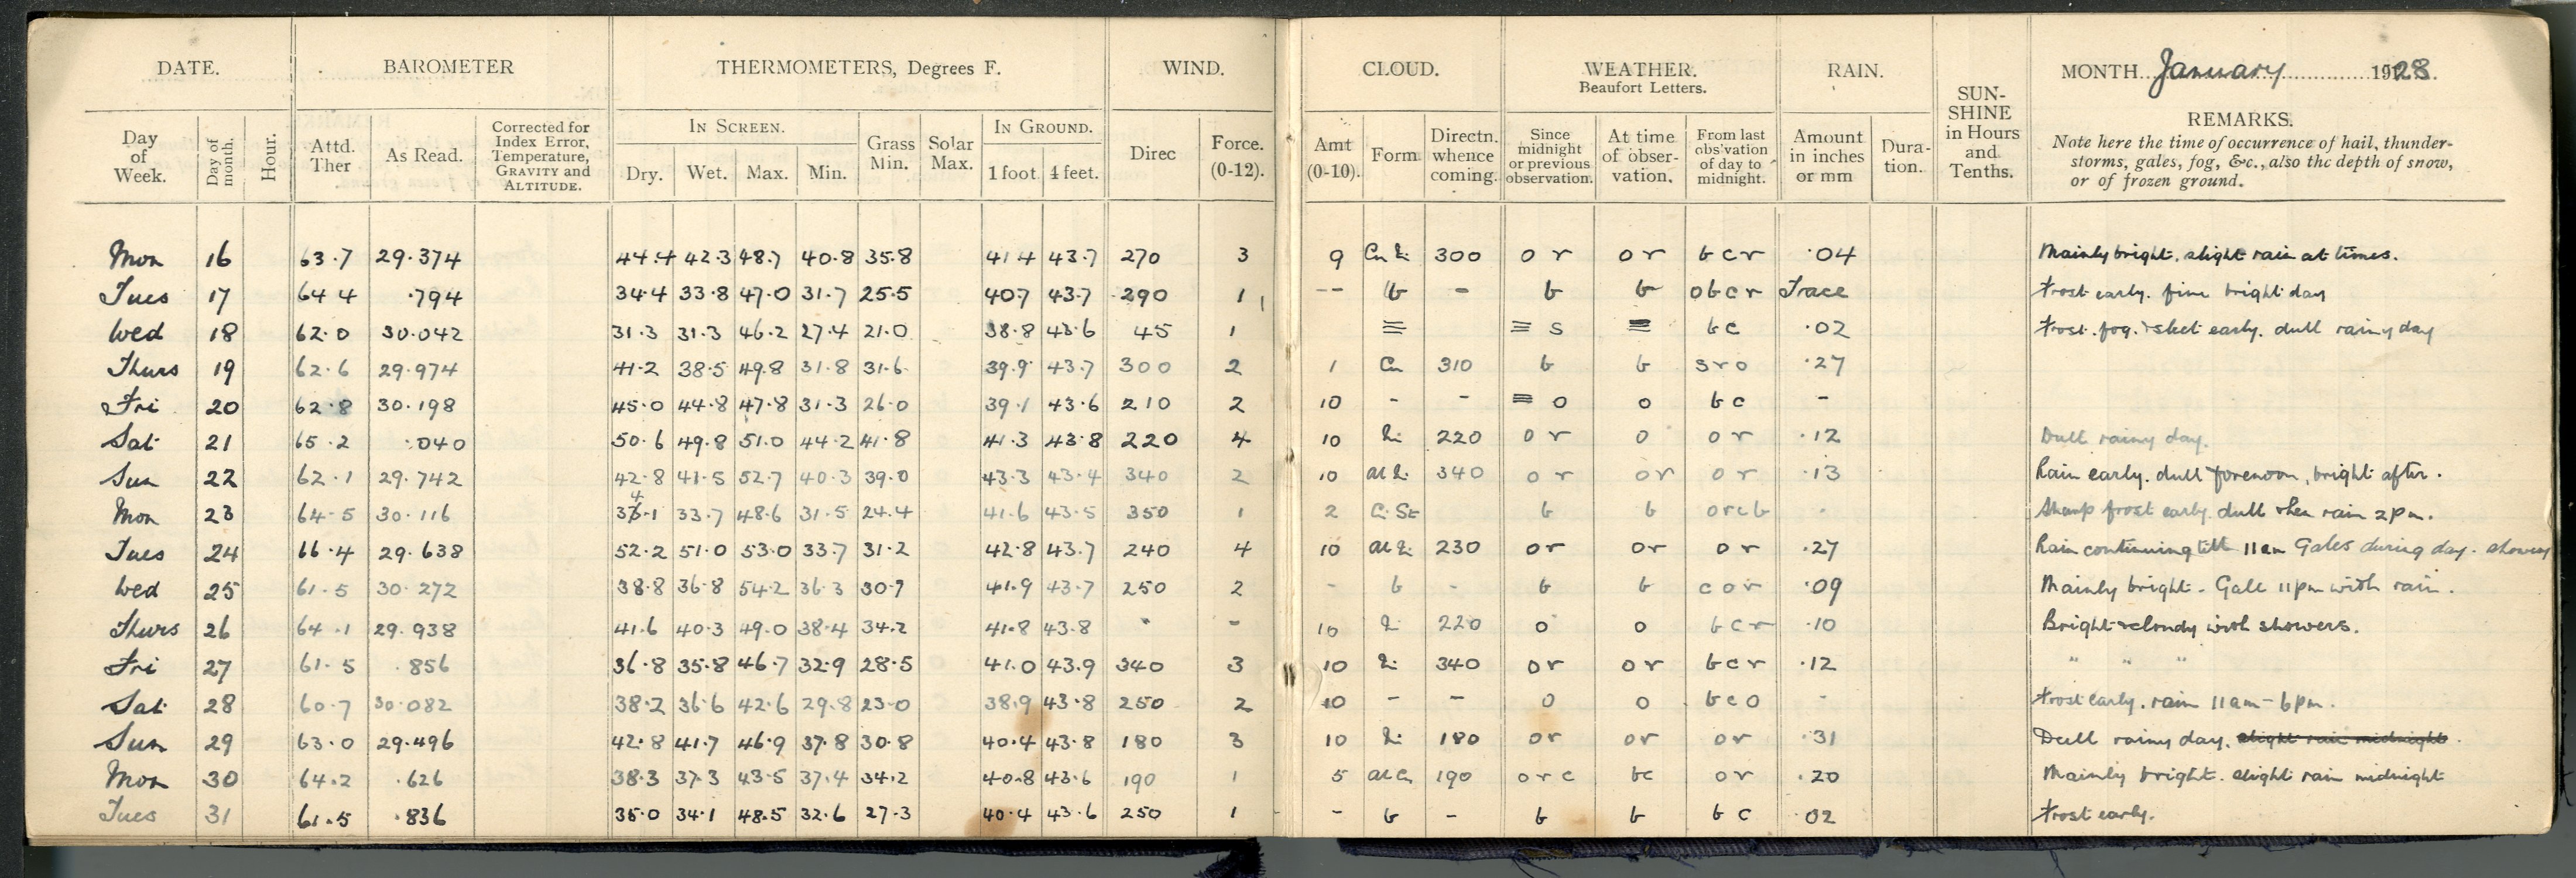 DATE. BAROMETER THERMOMETERS, Degrees F. WIND. CLOUD. WEATHER. Beaufort Letters. RAIN. SUN-SHINE in Hours and Tenths. MONTH January 1928
REMARKS.
Note here the time of occurrence of hail, thunder-
storms, gales, fog, &c., also the depth of snow,
or of frozen ground.
IN SCREEN. IN GROUND.
Day of Week. Day of month. Hour. Attd. Ther As Read. Corrected for Index Error, Temperature, GRAVITY and ALTITUDE. Dry. Wet. Max. Min. Grass Min. Solar Max. 1 foot. 4 feet. Direc Force. (0-12). Amt (0-10). Form Directn. whence coming. Since midnight or previous observation. At time of obser-vation. From last obs'vation of day to midnight. Amount in inches or mm Dura-tion.
Mon 16 63.7 29.374 44.4 42.3 48.7 40.8 35.8 41 4 43.7 270 3 9 300 o r o r b c r .04 Mainly bright. slight rain at times.
Tues 17 64 4 .794 34.4 33.8 47.0 31.7 25.5 40.7 43.7 290 1 -- b - b b o b c r Trace Frost early. fine bright day
Wed 18 62.0 30.042 31.3 31.3 46.2 27.4 21.0 38.8 43.6 45 1 ≡ ≡ s ≡ b c .02 Frost. fog. & sleet early. dull rainy day
Thurs 19 62.6 29.974 41.2 38.5 49.8 31.8 31.6 39.9 43.7 300 2 1 Cu 310 b b s r o .27
Fri 20 62.8 30.198 45.0 44.8 47.8 31.3 26.0 39.1 43.6 210 2 10 - - ≡ o o b c -
Sat 21 65.2 .040 50.6 49.8 51.0 44.2 41.8 41.3 43.8 220 4 10 220 o r o o r .12 Dull rainy day.
Sun 22 62.1 29.742 42.8 41.5 52.7 40.3 39.0 43.3 43.4 340 2 10 340 o r o r o r .13 Rain early. dull forenoon, bright after.
Mon 23 64.5 30.116 34.1 33.7 48.6 31.5 24.4 41.6 43.5 350 1 2 C. St b b o r c b . Sharp frost early. dull then rain 2pm.
Tues 24 66.4 29.638 52.2 51.0 53.0 33.7 31.2 42.8 43.7 240 4 10 230 o r o r o r .27 Rain continuing till 11am Gales during day. showery
Wed 25 61.5 30.272 38.8 36.8 54.2 36.3 30.7 41.9 43.7 250 2 - b - b b c o r .09 Mainly bright - Gale 11pm with rain.
Thurs 26 64.1 29.938 41.6 40.3 49.0 38.4 34.2 41.8 43.8 - 10 220 o o b c r .10 Bright & cloudy with showers.
Fri 27 61.5 .856 36.8 35.8 46.7 32.9 28.5 41.0 43.9 340 3 10 340 o r o r b c r .12 " " "
Sat 28 60.7 30.082 38.2 36.6 42.6 29.8 23.0 38.9 43.8 250 2 10 - - o o b c o - Frost early. rain 11am - 6pm.
Sun 29 63.0 29.496 42.8 41.7 46.9 37.8 30.8 40.4 43.8 180 3 10 180 o r o r o r .31 Dull rainy day. slight rain midnight.
Mon 30 64.2 .626 38.3 37.3 43.5 37.4 34.2 40.8 43.6 190 1 5 190 o r c b c o r .20 Mainly bright. slight rain midnight
Tues 31 61.5 .836 35.0 34.1 48.5 32.6 27.3 40.4 43.6 250 1 - b - b b b c 02 Frost early.